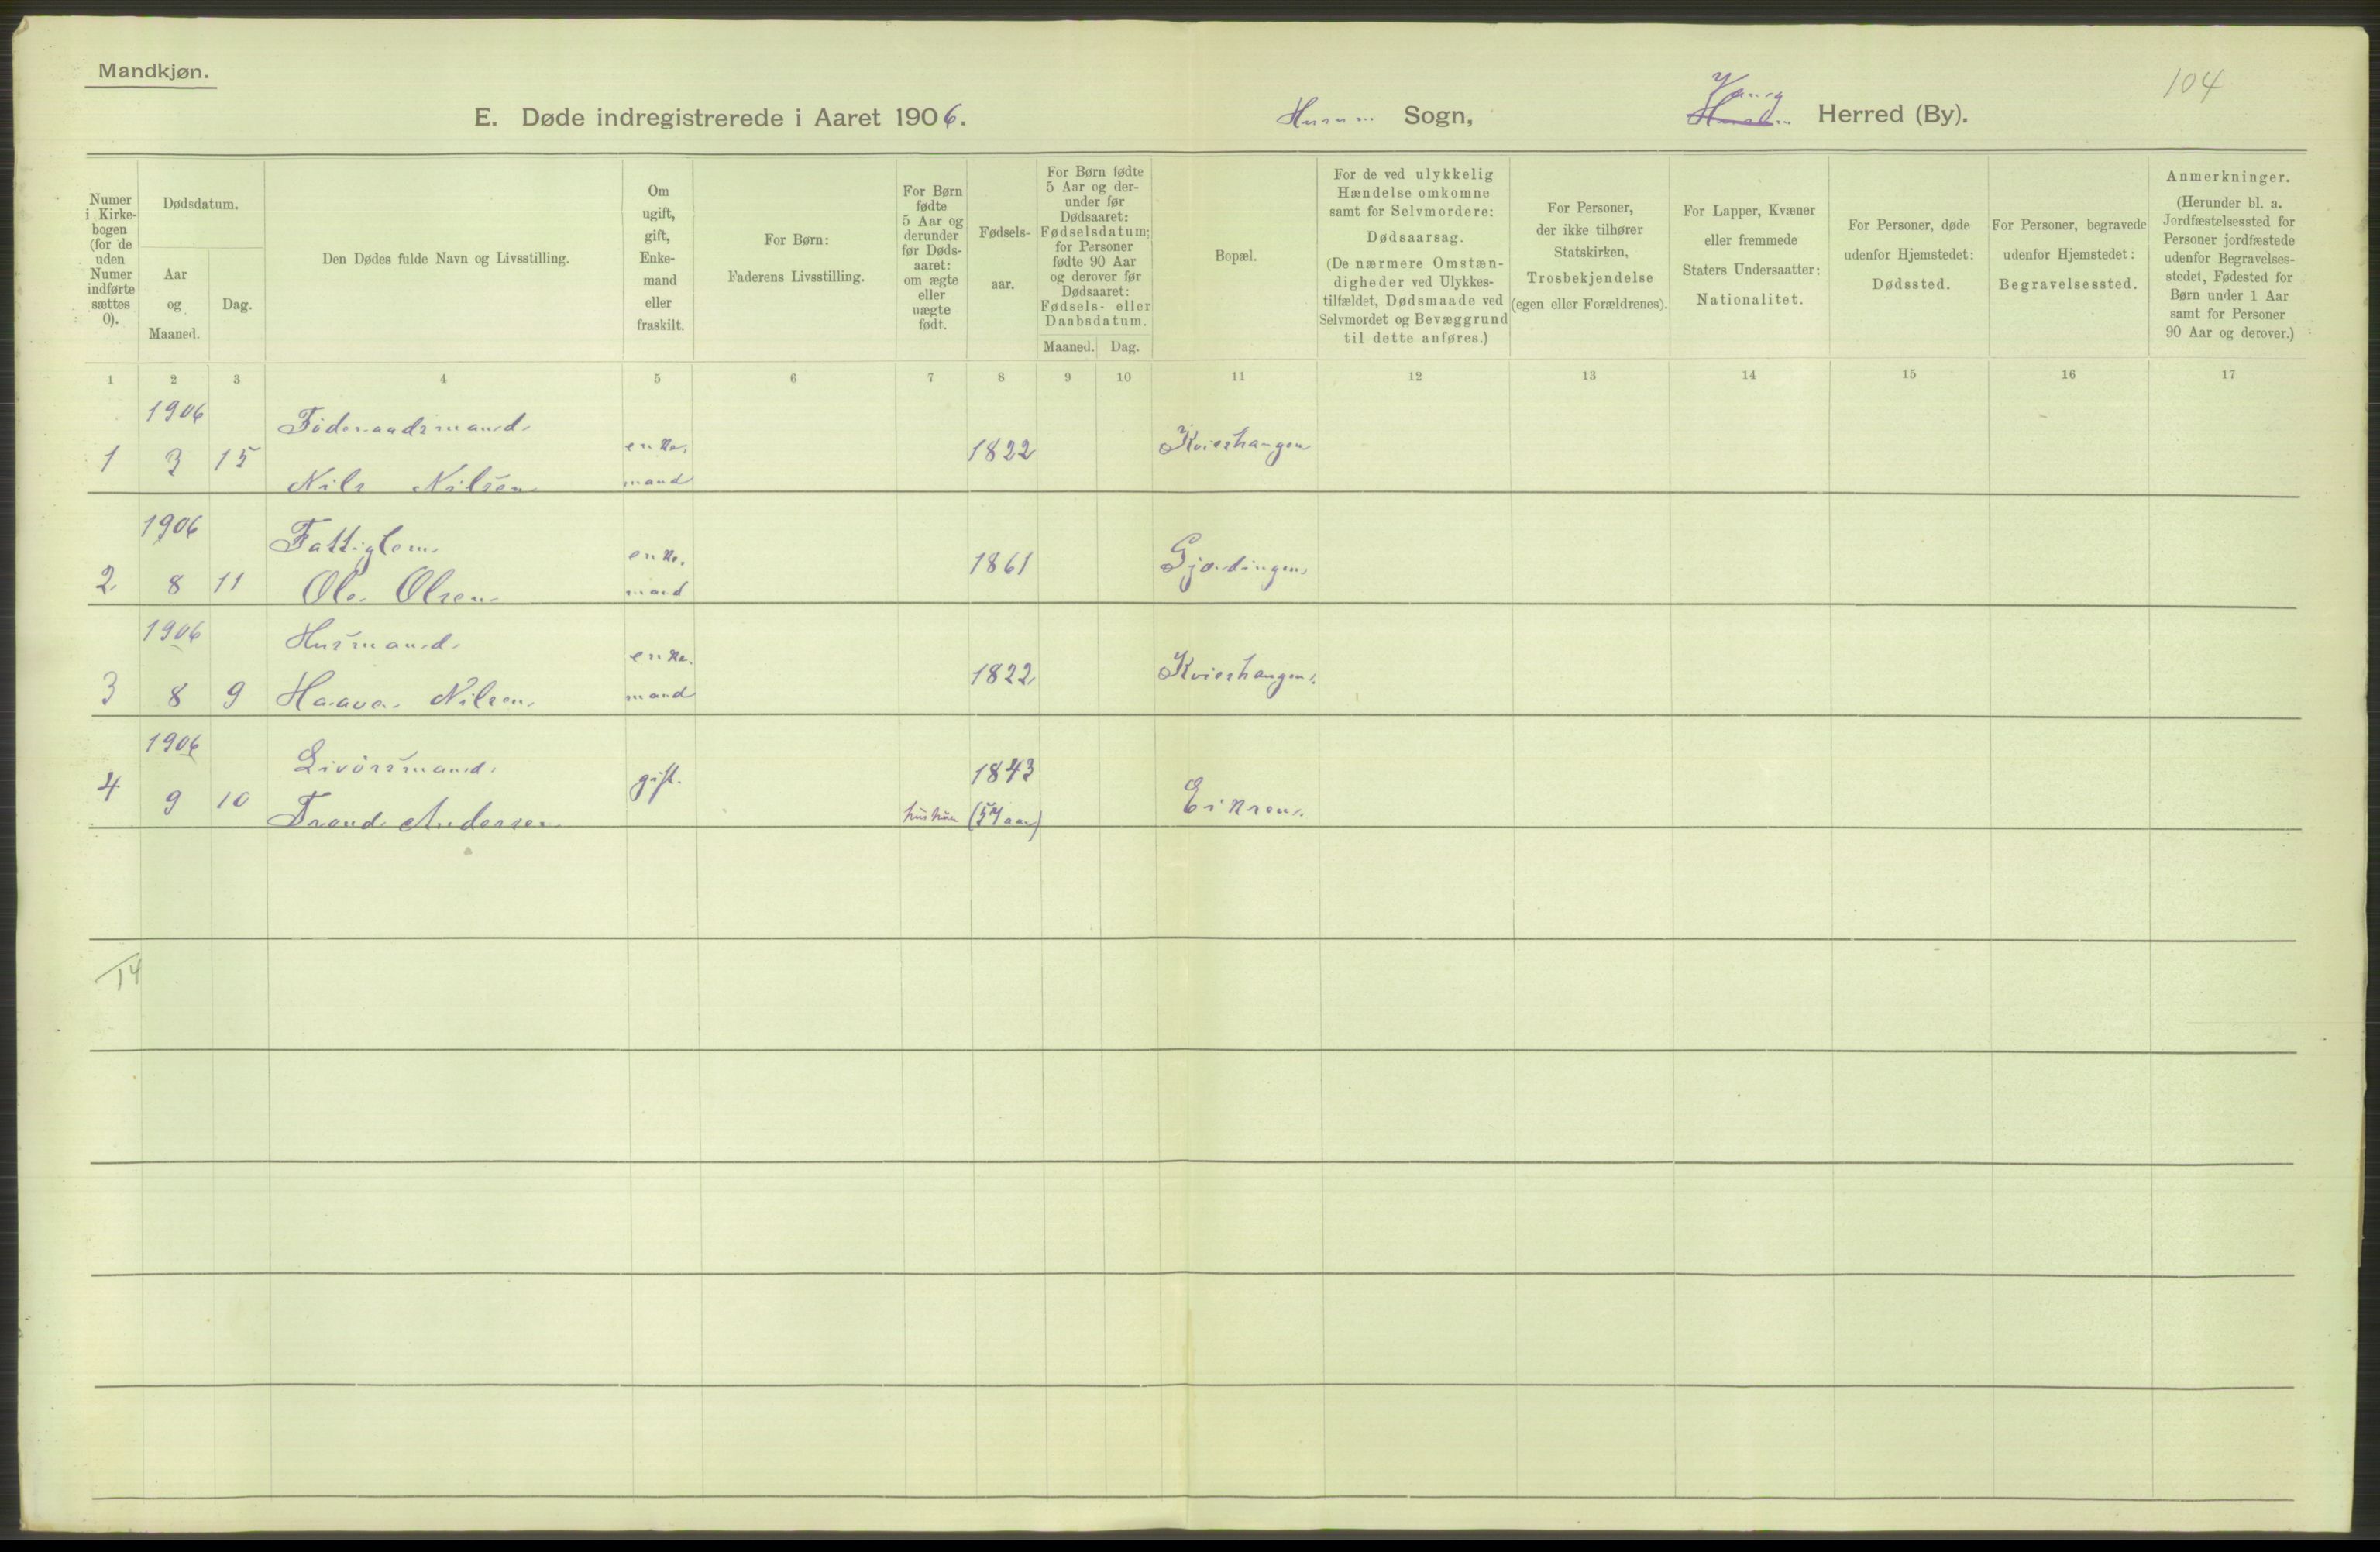 Mandkjøn.
104
E. Døde indregistrerede i Aaret 1906.
Husum Sogn,
Vang
Herred (By).
Numer i Kirkebogen (for de uden Numer indførte sættes 0).
Dødsdatum.
Aar og Maaned.
Dag.
Den Dødes fulde Navn og Livsstilling.
Om ugift, gift, Enkemand eller fraskilt.
For Børn: Faderens Livsstilling.
For Børn fødte 5 Aar og derunder før Dødsaaret: om ægte eller uægte født.
Fødselsaar.
For Børn fødte 5 Aar og derunder før Dødsaaret: Fødselsdatum; for Personer fødte 90 Aar og derover før Dødsaaret: Fødsels- eller Daabsdatum.
Maaned. Dag.
Bopæl.
For de ved ulykkelig Hændelse omkomne samt for Selvmordere: Dødsaarsag. (De nærmere Omstændigheder ved Ulykkestilfældet, Dødsmaade ved Selvmordet og Bevæggrund til dette anføres.)
For Personer, der ikke tilhører Statskirken, Trosbekjendelse (egen eller Forældrenes).
For Lapper, Kvæner eller fremmede Staters Undersaatter: Nationalitet.
For Personer, døde udenfor Hjemstedet: Dødssted.
For Personer, begravede udenfor Hjemstedet: Begravelsessted.
Anmerkninger. (Herunder bl. a. Jordfæstelsessted for Personer jordfæstede udenfor Begravelsesstedet, Fødested for Børn under 1 Aar samt for Personer 90 Aar og derover.)
1 2 3 4 5 6 7 8 9 10 11 12 13 14 15 16 17
1906 Føderaadsmand
1 3 15 Nils Nilsen enkemand 1822 Kvieshaugen
1906 Fattiglem
2 8 11 Ole Olsen enkemand 1861 Gjørdingen
1906 Husmand
3 8 9 Haavar Nilsen enkemand 1822 Kvieshaugen
1906 Livørsmand
4 9 10 Trond Andersen gift. 1843 Erikson
(54 aar)
14